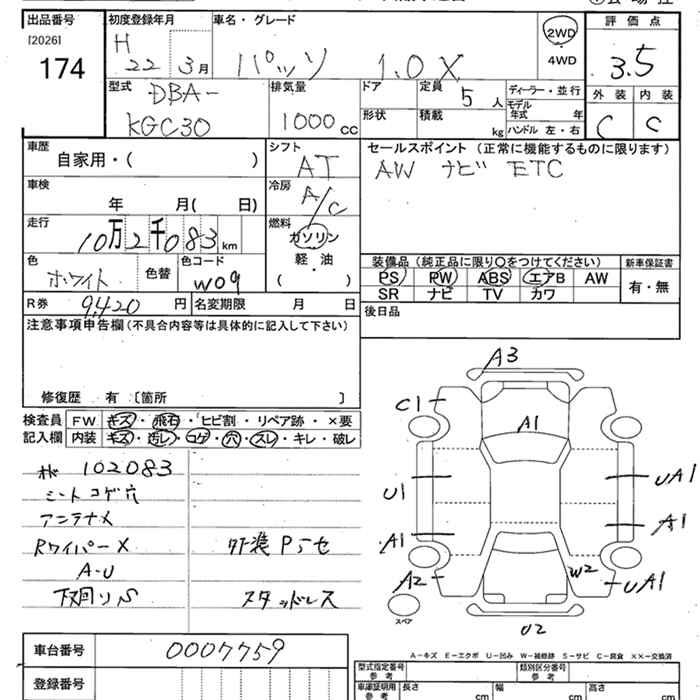 出品番号 初度登録年月 車名・グレード 評価点
[2026] H
174 22 3月 パッソ 1.0X 2WD 3.5
4WD
型式 DBA- 排気量 ドア 定員 5人 ディーラー・並行 外装 内装
KGC30 1000cc 形状 積載 kg モデル年式 年 C C
ハンドル 左・右
車歴 シフト セールスポイント (正常に機能するものに限ります)
自家用・( ) AT AW ナビ ETC
車検 冷房 A/C
年 月( 日)
走行 燃料
10万2千083km ガソリン
色 色替 色コード 軽・油 装備品(純正品に限り○をつけてください) 新車保証書
ホワイト W09 ( ) PS PW ABS エアB AW 有・無
SR ナビ TV カワ
R券 9,420円 名変期限 月 日 後日品
注意事項申告欄(不具合内容等は具体的に記入して下さい)
修復歴 有 〔箇所 〕
検査員 FW キズ・飛石・ヒビ割・リペア跡・×要
記入欄 内装 キズ・汚レ・コゲ・穴・スレ・キレ・破レ
102083
シートコゲ穴
アンテナ×
Rワイパー×
A-U
下回りS
外装Pちせ
スタッドレス
A3
C1
A1
U1
UA1
A1
A1
A2
W2
UA1
スペア
U2
A-キズ E-エクボ U-凹み W-補修跡 S-サビ C-腐食 ××-交換済
車台番号 0007759
登録番号
型式指定番号 参考 類別区分番号 参考
車庫証明用 参考 長さ cm 幅 cm 高さ cm